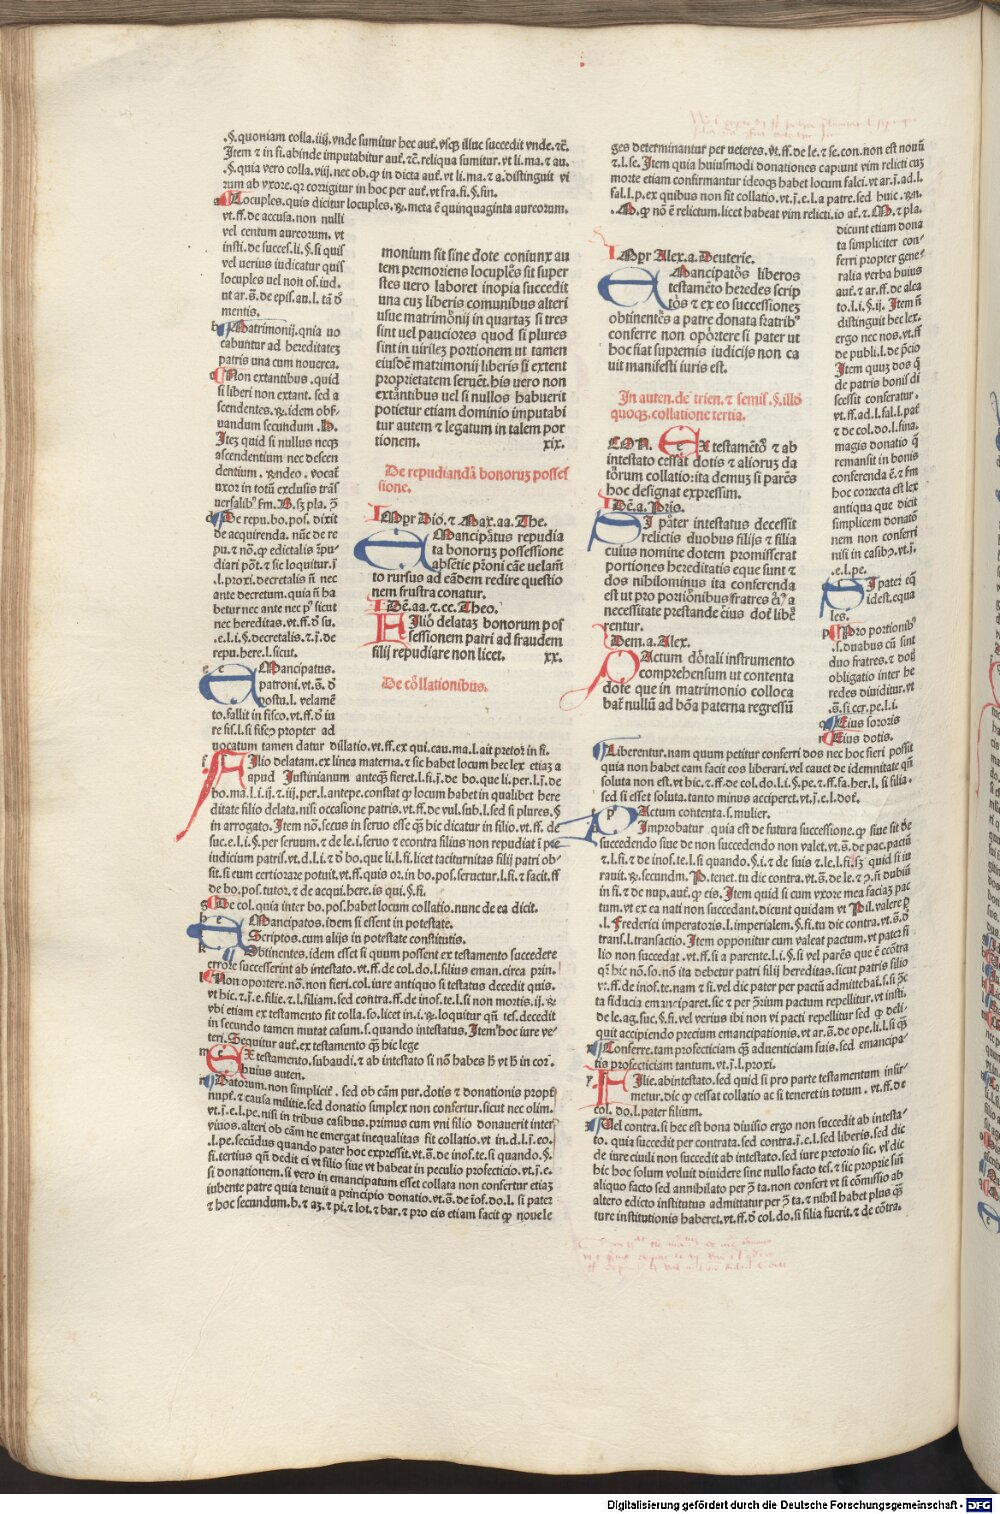 .§. quoniam colla. iiij. vnde sumitur hec aut̄. vsq̄ illuc succedit vnde. ⁊c̄.
Item ⁊ in fi. abinde imputabitur aut̄. ⁊c̄. reliqua sumitur. vt li. ma. ⁊ au.
.§. quia vero colla. viij. nec ob. ꝙ in dicta aut̄. vt li. ma. ⁊ a. distinguit vi
rum ab vxore. qr corrigitur in hoc per aut̄. vt fra. fi. §. fin.
Locuples. quis dicitur locuples. meta ē quinquaginta aureorum.
vt. ff. de accusa. non nulli
vel centum aureorum. vt
insti. de succes. li. §. si quis
vel verius iudicatur quis
locuples vel non os. iud.
mentis.
Matrimonij. quia uo
cabuntur ad hereditatez
patris una cum nouerca.
Non extantibus. quid
si liberi non extant. sed a
scendentes. idem obser
uandum secundum
Itez quid si nullus necq̄
ascendentium nec descen
dentium. vocat̄
uxor in totū exclusis trās
De repu. bo. pos. dixit
de acquirenda. nūc de re
pu. ⁊ nō. ꝙ edictalis
diari pōt. ⁊ sic loquitur. j̄
.l. proxi. decretalis n̄ nec
ante decretum. quia n̄ ha
betur nec ante nec p̄ sicut
nec hereditas. vt. ff. d̄ su.
e. l. i. §. decretalis. ⁊ j̄. de
repu. here. l. sicut.
EMancipatus.
patroni. vt. s̄. d̄
postu. l. velamē
to. fallit in fisco. vt. ff. d̄ iu
re fis. l. si fiscꝰ propter ad
uocatum tamen datur dillatio. vt. ff. ex qui. cau. ma. l. ait pretor in fi.
monium sit sine dote coniunx au
tem premoriens locuples sit super
stes uero laboret inopia succedit
una cuz liberis comunibus alteri
usue matrimonij in quartaz si tres
sint uel pauciores quod si plures
sint in uirilez portionem ut tamen
eiusdē matrimonij liberis si extent
proprietatem seruet. his uero non
extantibus uel si nullos habuerit
potietur etiam dominio imputabi
tur autem ⁊ legatum in talem por
tionem. xix.
De repudianda bonoruz posses
sione.
IMpr Dio. ⁊ Max. aa. The.
EMancipatus repudia
ta bonoruz possessione
absētie p̄roni cāe uelam̄
to rursus ad eādem redire questio
nem frustra conatur.
IDē. aa. ⁊. cc. Theo.
FIlio delataz bonorum pos
sessionem patri ad fraudem
filij repudiare non licet. xx.
De collationibus.
FIlio delatam. ex linea materna. ⁊ sic habet locum hec lex etiaz a
apud Justinianum anteq̄ fieret. l. fi. j̄. de bo. que li. per. l. j̄. de
bo. ma. l. i. ij. ⁊ iij. per. l. antepe. constat ꝙ locum habet in qualibet here
ditate filio delata. nisi occasione patris. vt. ff. de vul. sub. l. sed si plures. §
in arrogato. Item nō. secus in seruo esse q̄ hic dicatur in filio. vt. ff. de
suc. e. l. i. §. per seruum. ⁊ de le. i. seruo ⁊ econtra filius non repudiat ī pre
iudicium patris. vt. d. l. i. ⁊ d̄ bo. que li. l. fi. licet taciturnitas filij patri ob
sit. si eum certiorare potuit. vt. ff. quis or. in bo. pos. seruetur. l. fi. ⁊ facit. ff
de bo. pos. tutor. ⁊ de acqui. here. is qui. §. fi.
De col. quia inter bo. pos. habet locum collatio. nunc de ea dicit.
EMancipatos. idem si essent in potestate.
Scriptos. cum alijs in potestate constitutis.
Obtinentes. idem esset si quum possent ex testamento succedere
errore successerint ab intestato. vt. ff. de col. do. l. filius eman. circa prin.
Non oportere. nō. non fieri. col. iure antiquo si testatus decedit quis.
vt hic. ⁊ j̄. e. filie. ⁊ l. filiam. sed contra. ff. de inof. te. l. si non mortis. ij.
vbi etiam ex testamento fit colla. so. licet in. i. loquitur qn̄ tes. decedit
in secundo tamen mutat casum. s. quando intestatus. Item hoc iure ve
teri. Sequitur aut̄. ex testamento q̄ hic lege
EX testamento. subaudi. ⁊ ab intestato si nō habes h̄ vt h̄ in cor̄.
huius auten.
Datorum. non simplicit̄. sed ob cām pur. dotis ⁊ donationis propt̄
nupt̄. ⁊ causa militie. sed donatio simplex non confertur. sicut nec olim.
vt. j̄. e. l. pe. nisi in tribus casibus. primus cum vni filio donauerit inter
viuos. alteri ob cām ne emergat inequalitas fit collatio. vt in. d. l. j̄. eo.
.l. pe. secūdus quando pater hoc expressit. vt. s̄. de inof. te. si quando. §.
fi. tertius qn̄ dedit ei vt filio siue vt habeat in peculio profecticio. vt. j̄. e.
si donationem. si vero in emancipatum esset collata non confertur etiaz
iubente patre quia tenuit a principio donatio. vt. s̄. de iof. do. l. si pater
⁊ hoc secundum. b. ⁊ az. ⁊ pi. ⁊ lot. ⁊ bar. ⁊ pro eis etiam facit ꝙ nouele
ges determinantur per ueteres. vt. ff. de le. ⁊ se. con. non est nouū
⁊. l. se. Item quia huiusmodi donationes capiunt vim relicti cuz
morte etiam confirmantur ideoq̄ habet locum falci. vt ar. j̄. ad. l.
fal. l. p. ex quibus non fit collatio. vt. j̄. e. l. a patre. sed huic
ꝙ nō ē relictum. licet habeat vim relicti. io at̄. ⁊ M. ⁊ pla.
dicunt etiam dona
ta simpliciter con
ferri propter gene
ralia verba huius
aut̄. ⁊ ar. ff. de alea
to. l. i. §. ij. Item n̄
distinguit hec lex.
ergo nec nos. vt. ff
de publi. l. de p̄cio
Item quuz dos q̄
de patris bonis di
scessit conferatur.
vt. ff. ad. l. fal. l. pat̄
⁊ de col. do. l. fina.
magis donatio q̄
remansit in bonis
conferenda ē. ⁊ fm
hoc correcta est lex
antiqua que dicit
simplicem donatō
nem non conferri
nisi in casibꝰ. vt. j̄.
.e. l. pe.
SI pater eq̄
idest. equa
les.
Pro portionibꝰ
.s. duabus cū sint
duo fratres. ⁊ dot̄
obligatio inter he
redes diuiditur. vt
.s̄. si cer. pe. l. i.
Eius sororis
Eius dotis.
IMpr Alex. a. Deuterie.
EMancipatos liberos
testamēto heredes scrip
tos ⁊ ex eo successionez
obtinentes a patre donata fratribꝰ
conferre non oportere si pater ut
hoc fiat supremis iudicijs non ca
uit manifesti iuris est.
In auten. de trien. ⁊ semis. §. illō
quoqz. collatione tertia.
CON. EX testamēto ⁊ ab
intestato cessat dotis ⁊ alioruz da
torum collatio: ita demuz si parēs
hoc designat expressim.
IDē. a. Prio.
SI pater intestatus decessit
relictis duobus filijs ⁊ filia
cuius nomine dotem promisserat
portiones hereditatis eque sunt ⁊
dos nihilominus ita conferenda
est ut pro portionibus fratres a
necessitate prestande eius dot̄ libē
rentur.
Idem. a. Alex.
PActum dōtali instrumento
comprehensum ut contenta
dote que in matrimonio colloca
bat̄ nullū ad bōa paterna regressū
Liberentur. nam quum petitur conferri dos nec hoc fieri possit
quia non habet eam facit eos liberari. vel cauet de idemnitate qn̄
soluta non est. vt hic. ⁊ ff. de col. do. l. i. §. pe. ⁊ ff. fa. her. l. si filia.
sed si esset soluta. tanto minus acciperet. vt. j̄. e. l. dot̄.
PActum contenta. s. mulier.
Improbatur quia est de futura successione. ꝙ siue sit de
succedendo siue de non succedendo non valet. vt. s̄. de pac. pactū
⁊. l. fi. ⁊ de inof. te. l. si quando. §. i. ⁊ de suis ⁊ le. l. fi. sz quid si iu
rauit. secundm. P. tenet. tu dic contra. vt. s̄. de le. ⁊ ꝯ. n̄ dubiū
in fi. ⁊ de nup. aut̄. ꝙ eis. Item quid si cum vxore mea faciaz pac
tum. vt ex ea nati non succedant. dicunt quidam vt Pil. valere p
.l. Frederici imperatoris. l. imperialem. §. fi. tu dic contra. vt. s̄. d̄
trans. l. transactio. Item opponitur cum valeat pactum. vt pater fi
lio non succedat. vt. ff. si a parente. l. i. §. si vel parēs que ē ecōtra
q̄ hic nō. so. nō ita debetur patri filij hereditas. sicut patris filio
vt. ff. de inof. te. nam ⁊ si. vel dic pater per pactū admittebat̄. s. si
ta fiducia emanciparet. sic ⁊ per ꝯ̄rium pactum repellitur. vt insti.
de le. ag. suc. §. fi. vel verius ibi non vi pacti repellitur sed ꝙ deli
quit accipiendo precium emancipationis. vt ar. s̄. de ope. li. l. si q̄
Conferre. tam profecticiam q̄ aduenticiam suis. sed emancipa
tis profecticiam tantum. vt. j̄. l. proxi.
FIlie. abintestato. sed quid si pro parte testamentum infir
metur. dic ꝙ cessat collatio ac si teneret in totum. vt. ff. de
col. do. l. pater filium.
Vel contra. si hec est bona diuisio ergo non succedit ab intesta
to. quia succedit per contrata. sed contra. j̄. e. l. sed liberis. sed dic
de iure ciuili non succedit ab intestato. sed iure pretorio sic. vl̓ dic
hic hoc solum voluit diuidere sine nullo facto tes. ⁊ sic proprie siū
aliquo facto sed annihilato per ꝯ̄ ta. non confert vt si cōmissio ab
altero edicto institutus admittatur per ꝯ̄ ta. ⁊ nihil habet plus q̄
iure institutionis haberet. vt. ff. d̄ col. do. si filia fuerit. ⁊ de cōtra.
Digitalisierung gefördert durch die Deutsche Forschungsgemeinschaft - DFG